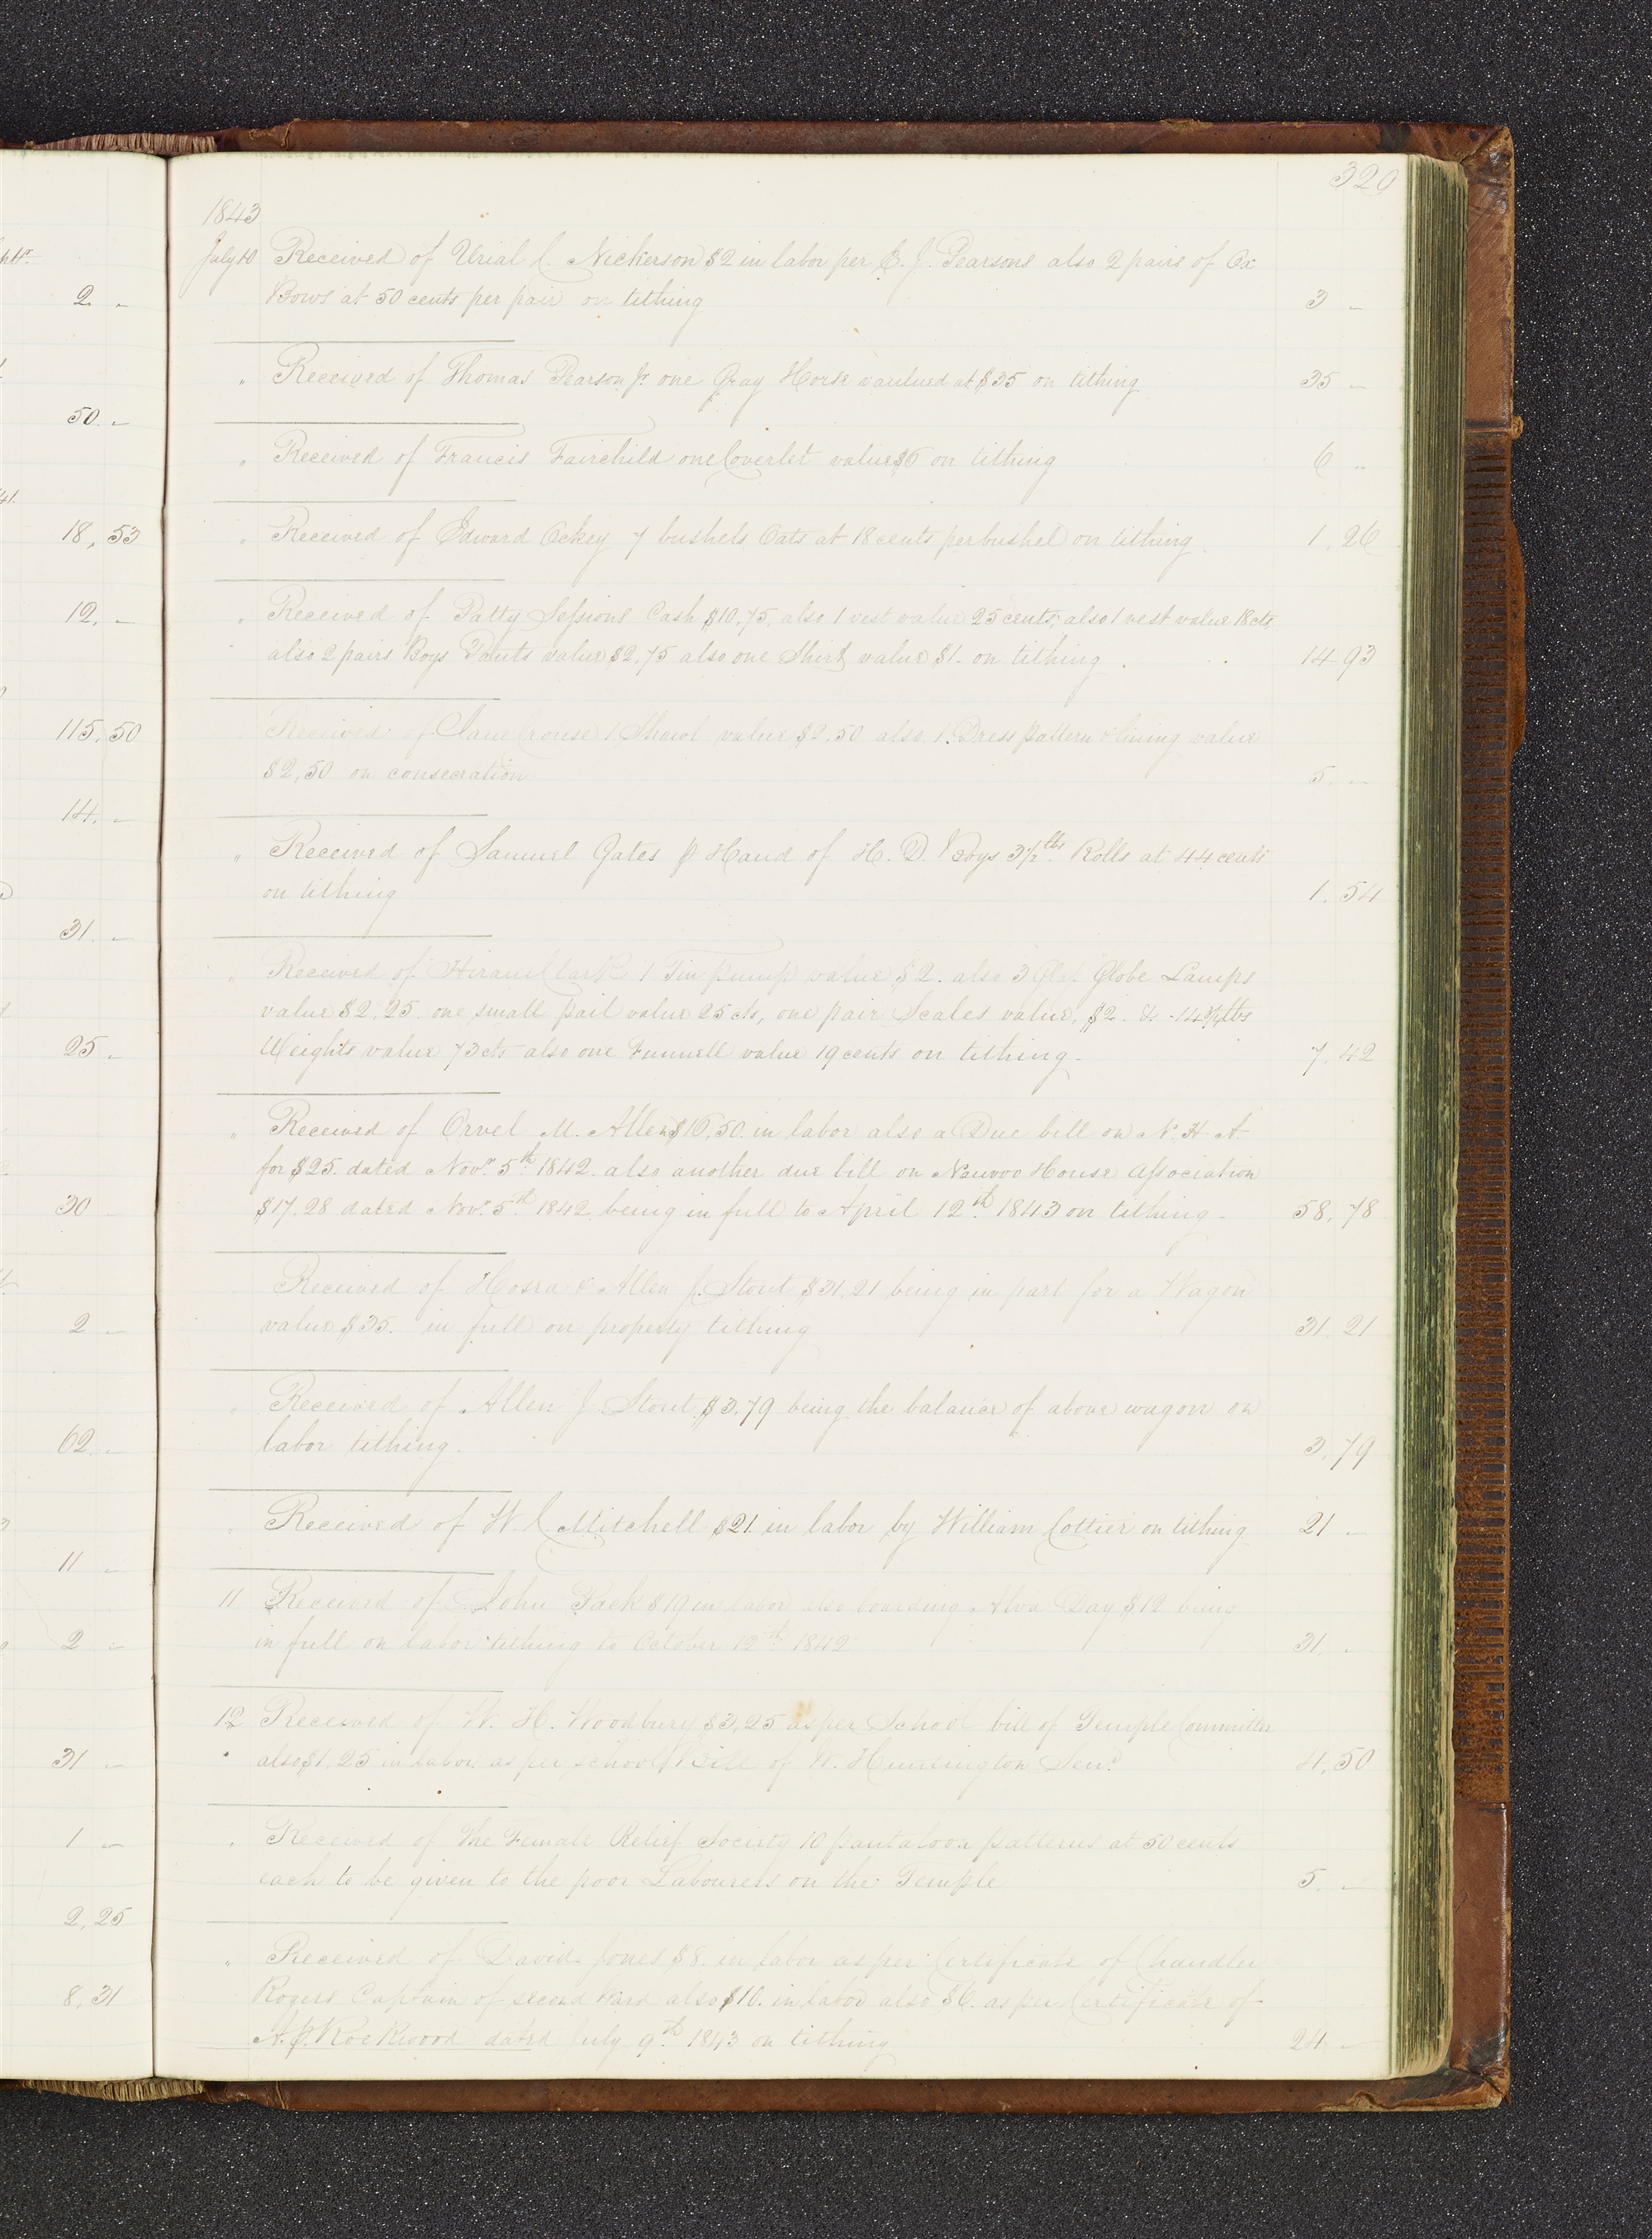 320
1843
July 10 Received of Urial C. Nickerson $2 in labor per E. J. Pearsons also 2 pairs of Ox
Bows at 50 cents per pair on tithing 3 -
" Received of Thomas Pearson Jr. one Gray Horse varilued at $35 on tithing 35 -
" Received of Francis Fairchild one Coverlet value $6 on tithing 6 "
" Received of Edward Ockey 7 bushels Oats at 18 cents per bushel on tithing. 1. 26
" Received of Patty Sessions Cash $10.75, also 1 vest value 25 cents, also 1 vest value 18 cts,
also 2 pairs Boys Pants value $2.75 also one Shirt value $1. on tithing. 14 93
Received of Jane Crouse 1 Shawl value $2,50 also 1 Dress pattern & lining value
$2,50 on consecration 5. -
" Received of Samuel Gates p Hand of H. D. Boys 3½ lbs Rolls at 44 cents
on tithing 1. 54
" Received of Hiram Clark 1 Tin pump value $2. also 3 Globe Lamps
value $2.25. one small pail value 25 cts, one pair Scales value, $2. & 14¾ lbs
Weights value 73 cts also one Funnell value 19 cents on tithing- 7. 42
" Received of Orvel M. Allen $16,50. in labor also a Due bill on N. H. A.
for $25. dated Novr. 5th 1842. also another due bill on Nauvoo House Association
$17.28 dated Novr. 5th 1842. being in full to April 12th 1843 on tithing- 58, 78
Received of Hosea & Allen J. Stout $31,21 being in part for a Wagon
value $35. in full on property tithing 31. 21
" Received of Allen J. Stout $3.79 being the balance of above wagon on
labor tithing. 3. 79
" Received of W. C. Mitchell $21. in labor by William Cottier on tithing 21 -
11 Received of John Pack $19 in labor also boarding Alva Day $12 being
in full on labor tithing to October 12th 1842 31. -
12 Received of W. H. Woodbury $3,25 as per School bill of Temple Committee
also $1,25 in labor as per school Bill of W. Huntington Senr. 4,50
" Received of the Female Relief Society 10 pantaloon patterns at 50 cents
each to be given to the poor Labourers on the Temple 5. -
" Received of David Jones $8. in labor as per Certificate of Chandler
Rogers Captain of second Ward also $10. in labor also $6. as per Certificate of
A. P. Rockwood dated July 9th 1843 on tithing 24 -
2 -
50. -
18, 53
12. -
115. 50
14. -
31. -
25 -
30
2 -
62 -
11 -
2 -
31 -
1 -
2,25
8,31